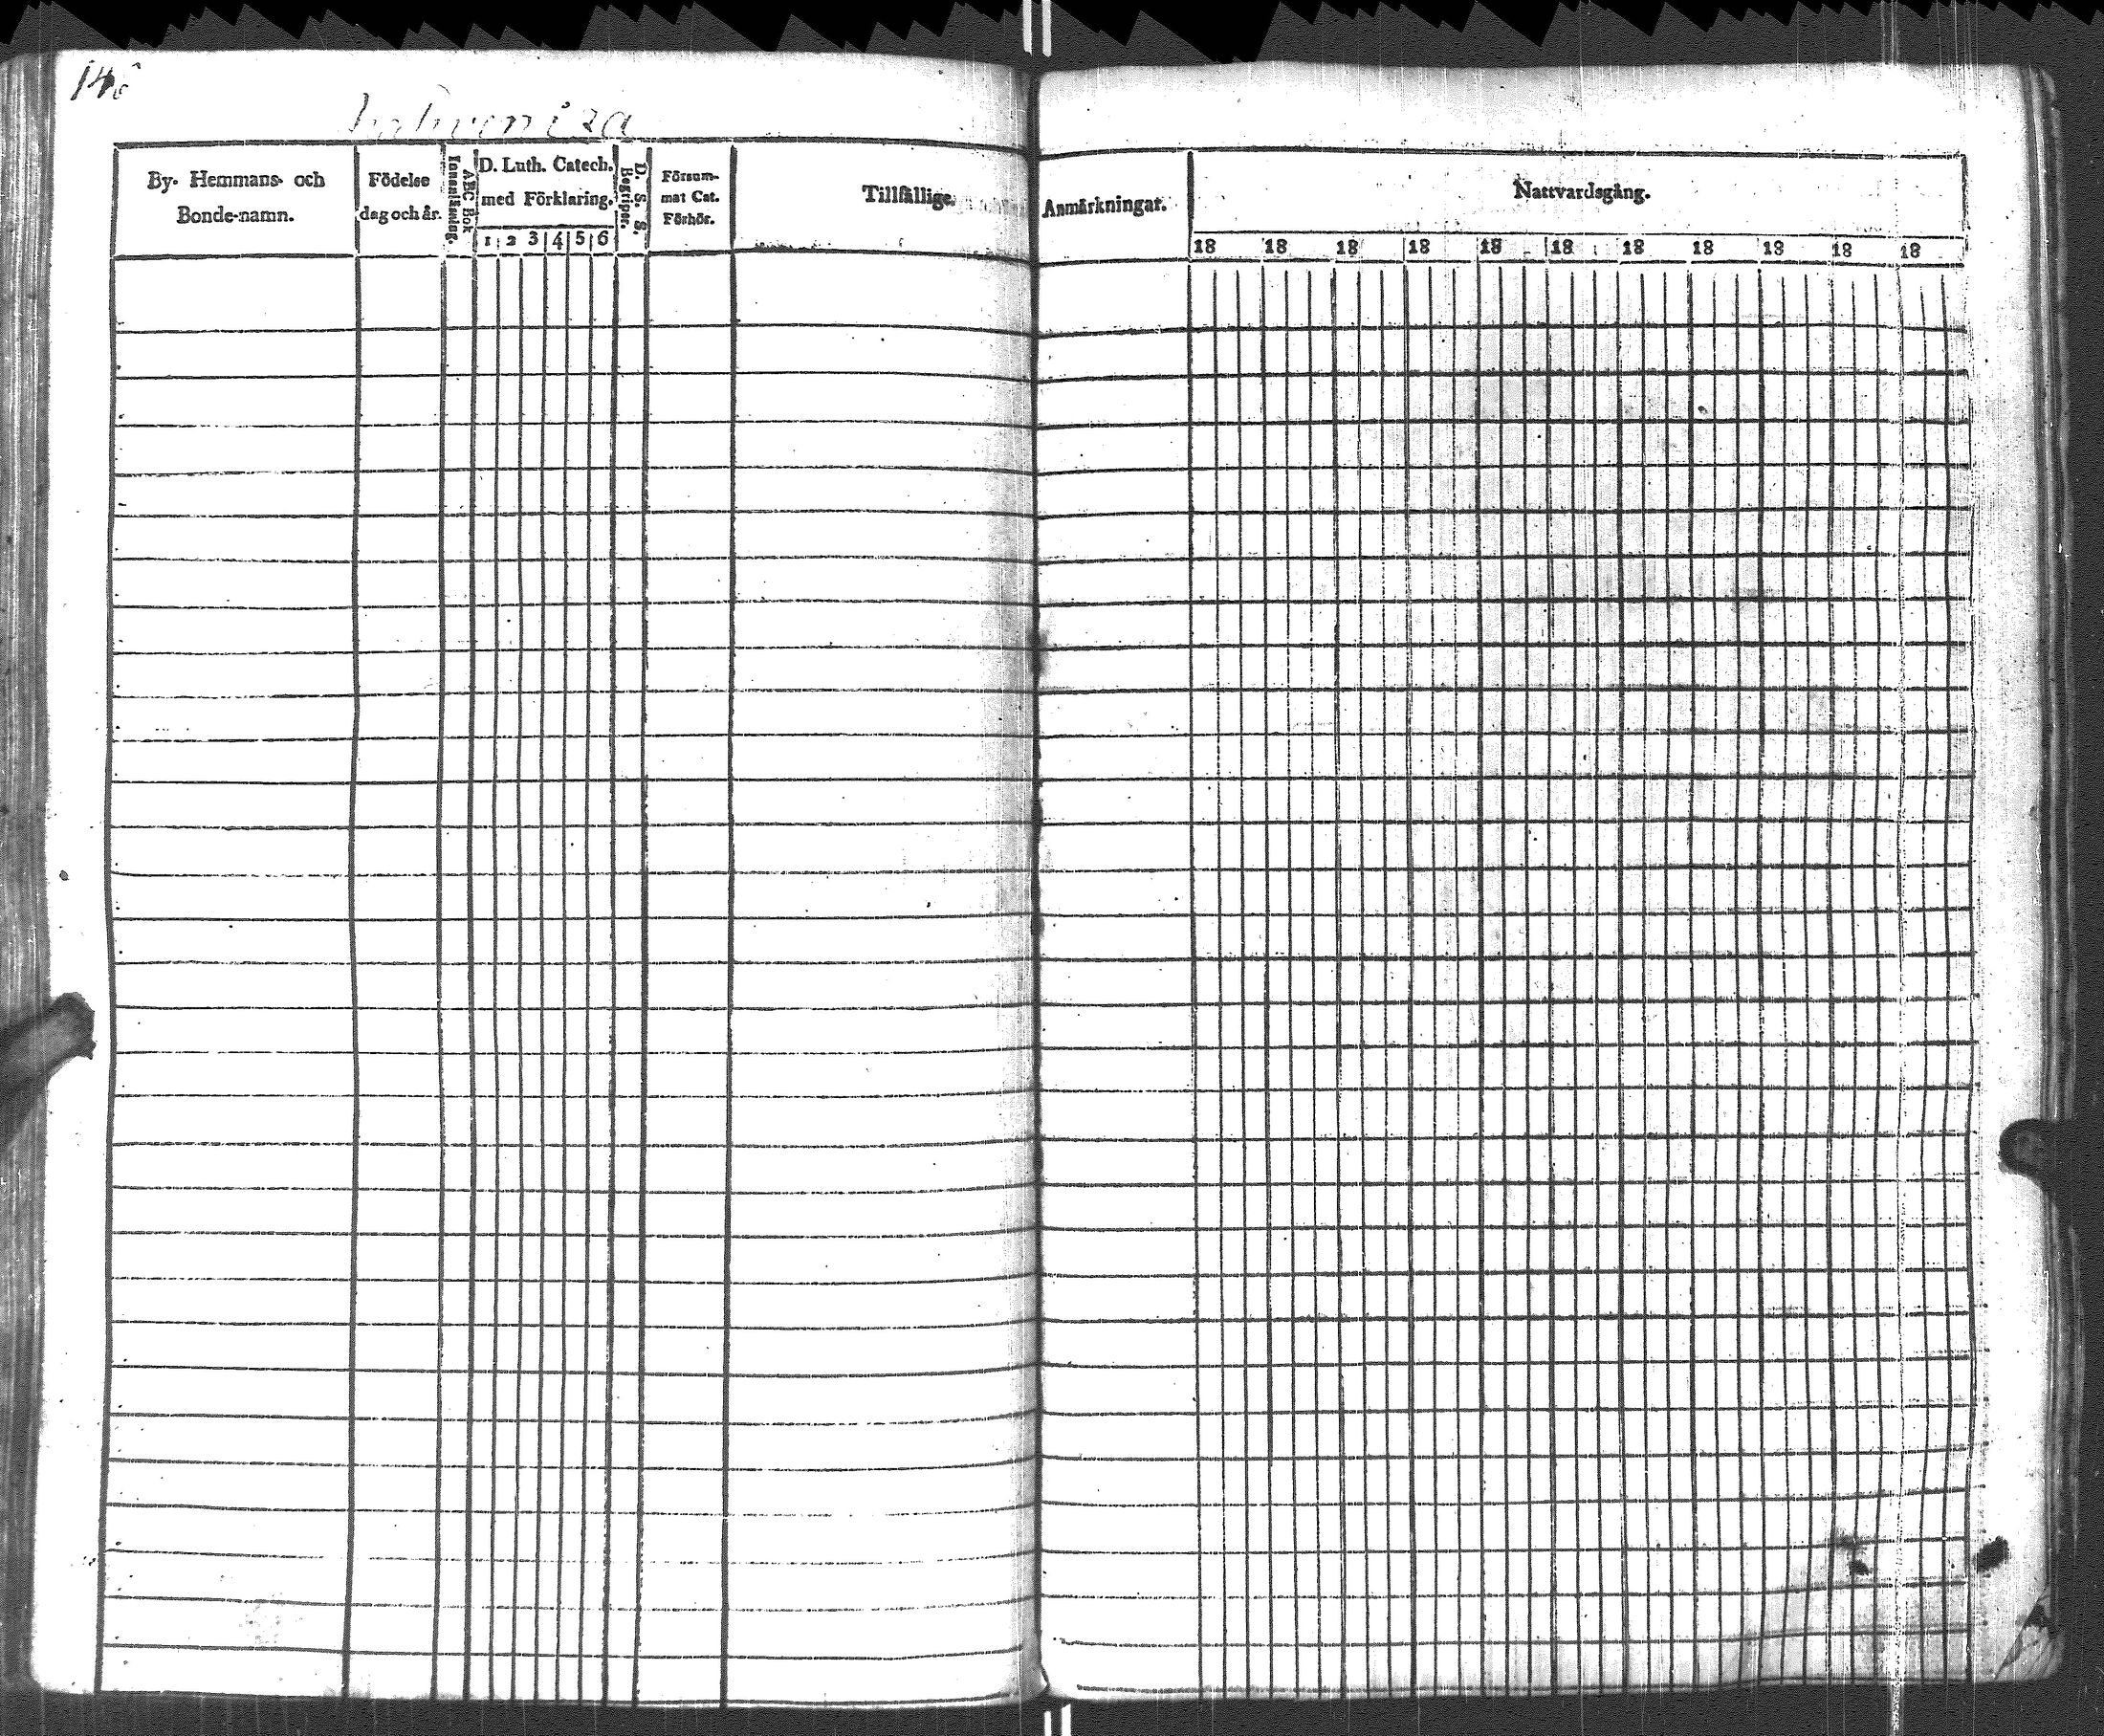 146
By- Hemmans- och
Bonde-namn.
Födelse
dag och år.
ABC Bok
Innanläsning.
D. Luth. Catech.
med Förklaring.
1 2 3 4 5 6
D. S. S.
Begriper.
Försum-
mat Cat.
Förhör.
Tillfällige
Anmärkningar.
Nattvardsgång.
18 18 18 18 18 18 18 18 18 18 18